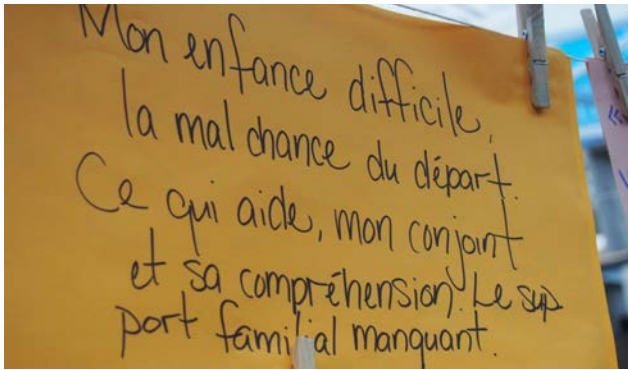 Mon enfance difficile,
la mal chance du départ.
Ce qui aide, mon conjoint
et sa compréhension. Le sup
port familial manquant.
«